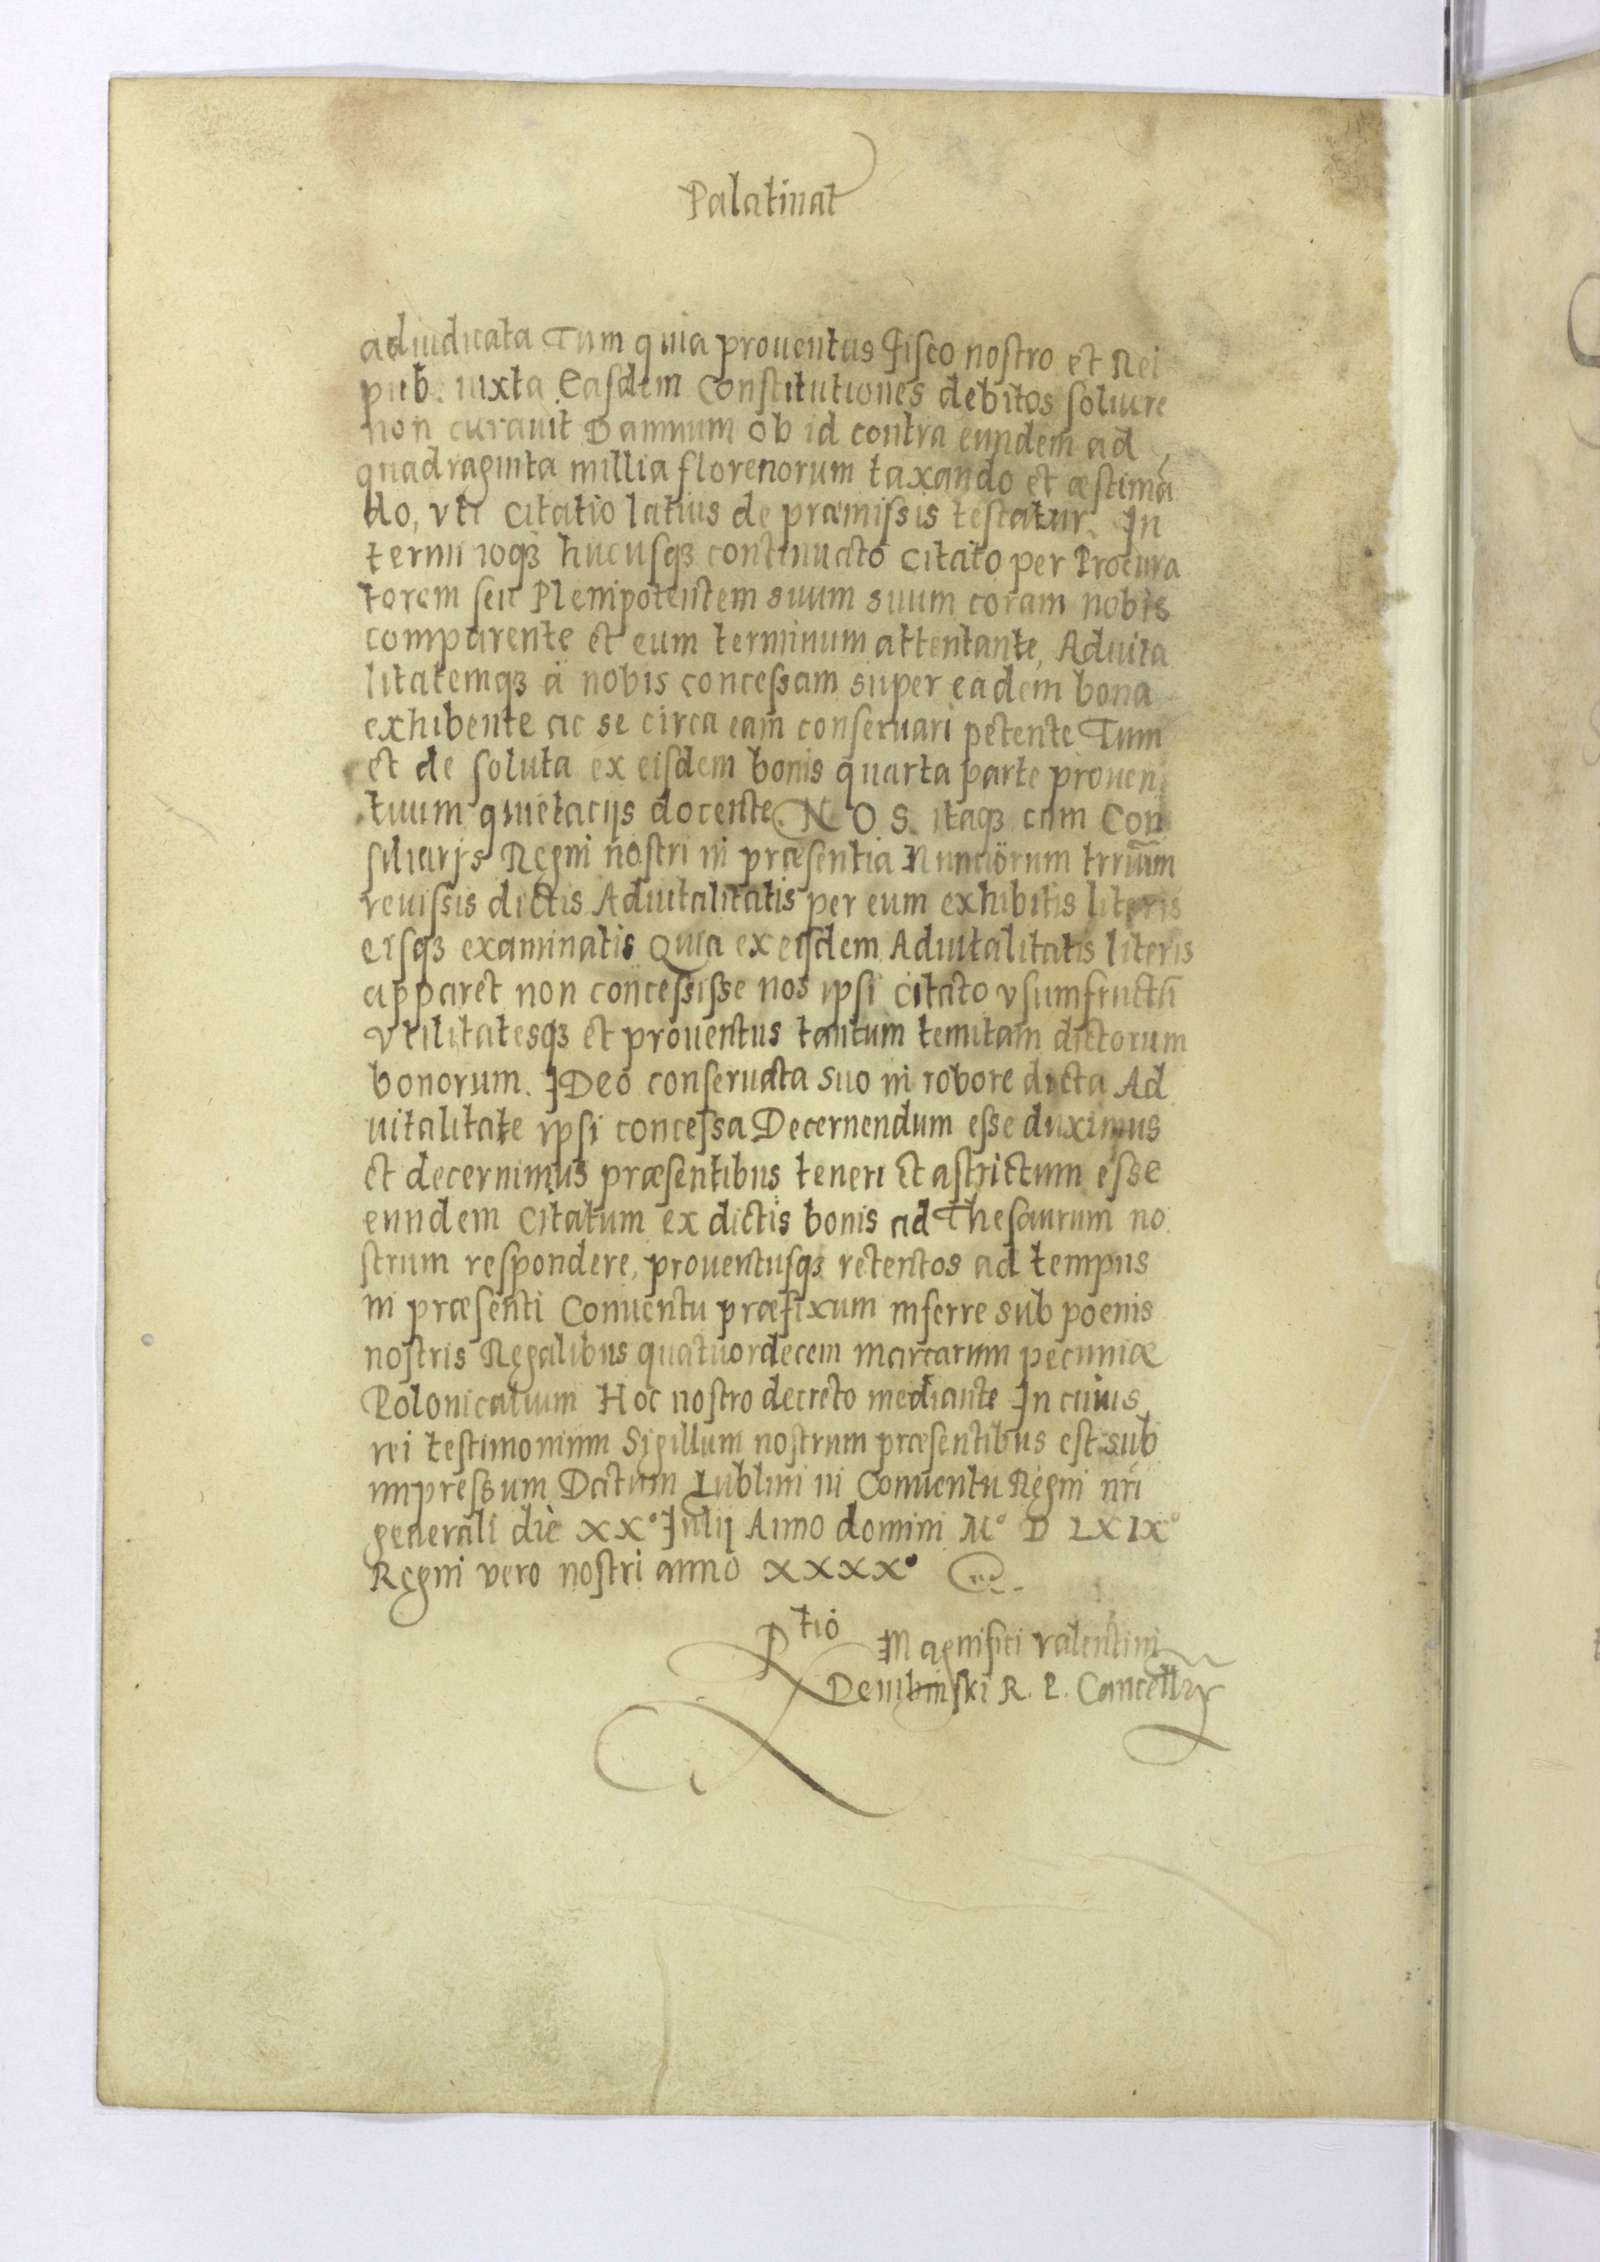 Palatinat
adiudicata Tum quia prouentus Fisco nostro et Rei
pub. iuxta Easdem Constitutiones debitos soluere
non curauit Damnum ob id contra eundem ad
quadraginta millia florenorum taxando et æstimā
do, vti Citatio latius de præmissis testatur. In
termi noqꝫ hucusqꝫ continuato Citato per Procura
torem seu Plenipotentem suum suum coram nobis
comparente et eum terminum attentante, Aduita
litatemqꝫ à nobis concessam super eadem bona
exhibente ac se circa eam conseruari petente Tum
et de soluta ex eisdem bonis quarta parte prouen
tuum quietacijs docente. NOS itaqꝫ cum Con
siliarijs Regni nostri in præsentia Nunciorum trrūm
reuissis dictis Aduitalitatis per eum exhibitis literis
eisqꝫ examinatis Quia ex eisdem Aduitalitatis literis
apparet non concessisse nos ipsi Citato vsumfructū
vtilitatesqꝫ et prouentus tantum temitam dictorum
bonorum. IDeo conseruata suo in robore dicta Ad
uitalitate ipsi concessa Decernendum esse duximus
et decernimus præsentibus teneri et astrictum esse
eundem Citatum ex dictis bonis ad Thesaurum no
strum respondere, prouentusqꝫ retentos ad tempus
in præsenti Conuentu præfixum inferre sub poenis
nostris Regalibus quatuordecem marcarum pecuniæ
Polonicalium Hoc nostro decreto mediante In cuius
rei testimonium Sigillum nostrum præsentibus est sub
impressum Datum Lublini in Conuentu Regni nri
generali die XX° Iulij Anno domini M° D LXIX°
Regni vero nostri anno XXXX°
Rtio Magnifici Valentini
Dembinski R. P. Cancellr